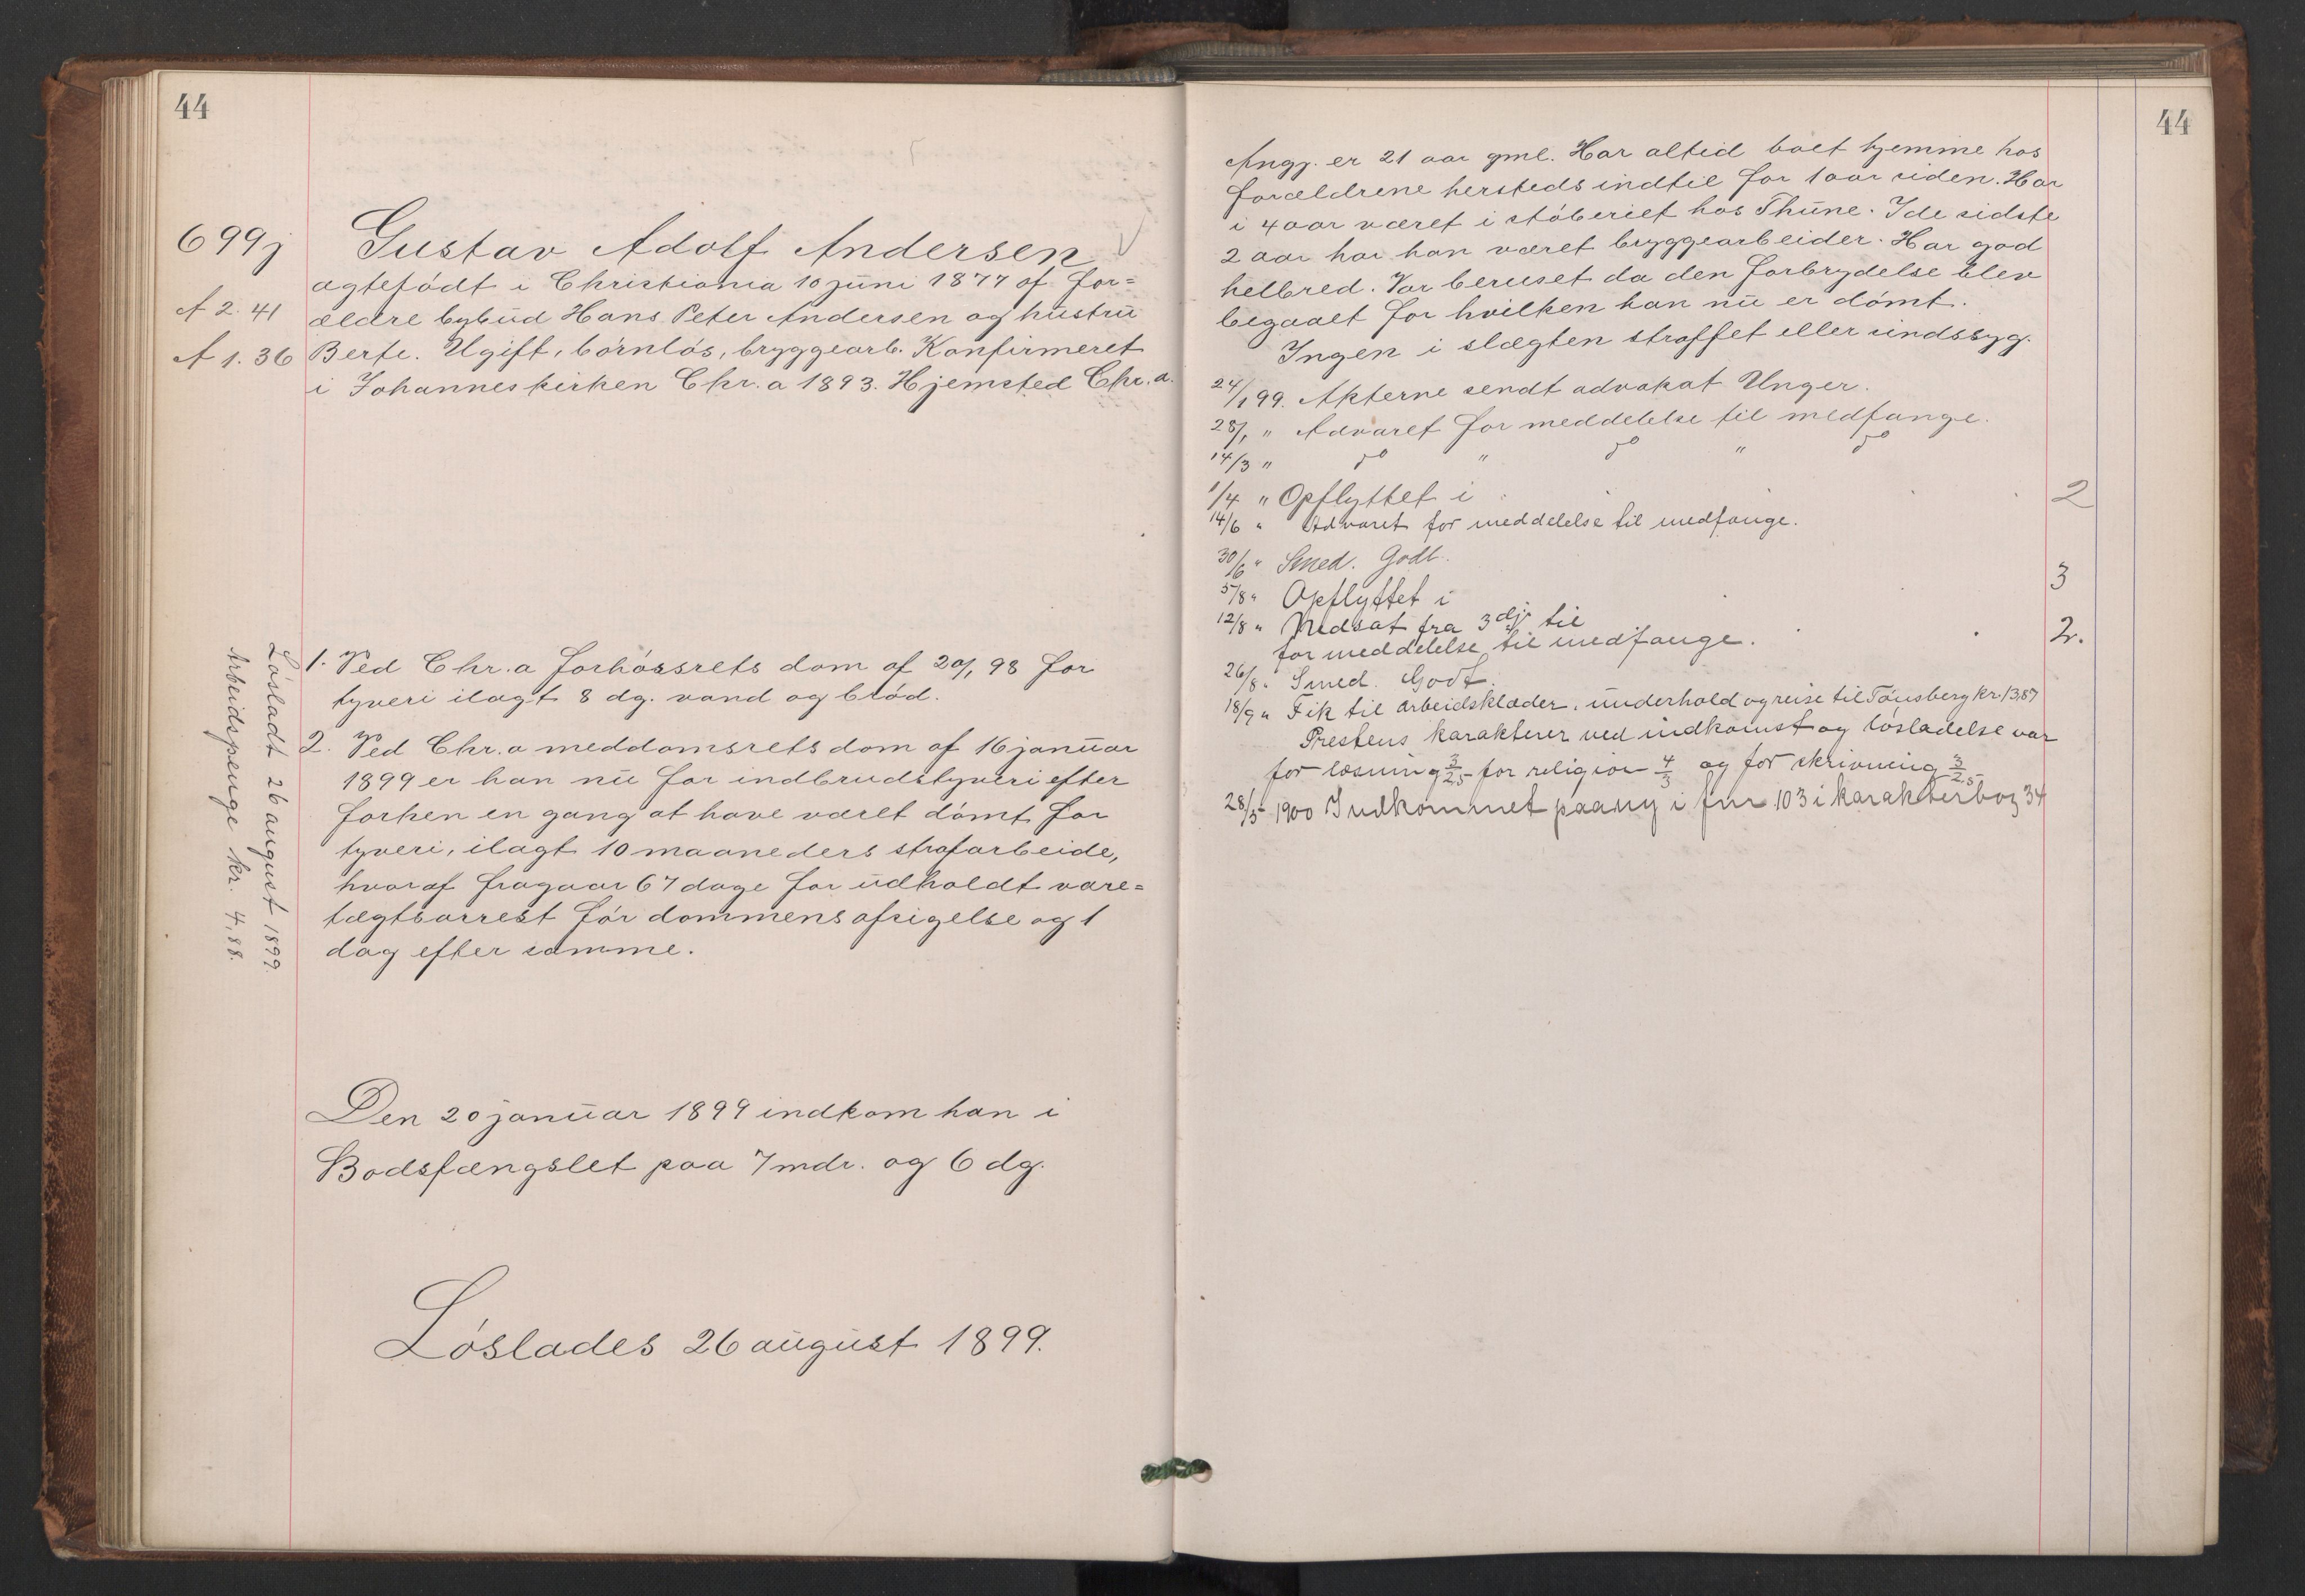 44
699j
Gustav Adolf Andersen
A 2. 41
A 1. 36
ægtefödt i Christiania 10 juni 1877 af for=
ældre bybud Hans Peter Andersen og hustru
Berte. Ugift, börnlös, bryggearb. Konfirmeret
i Johanneskirken Chr.a 1893. Hjemsted Chr.a.
1. Ved Chr.a forhörsrets dom af 20/1 98 for
tyveri ilagt 8 dg. vand og bröd.
2. Ved Chr.a meddomsrets dom af 16 januar
1899 er han nu for indbrudstyveri efter
forhen en gang at have været dömt for
tyveri, ilagt 10 maaneders strafarbeide,
hvoraf fragaar 67 dage for udholdt vare=
tægtsarrest för dommens afsigelse og 1
dag efter samme.
Lösladt 26 august 1899.
Arbeidspenge kr. 4,88.
Den 20 januar 1899 indkom han i
Bodsfængslet paa 7 mdr. og 6 dg.
Löslades 26 august 1899.
44
Angj. er 21 aar gml. Har altid boet hjemme hos
forældrene hersteds indtil for 1 aar siden. Har
i 4 aar været i stöberiet hos Thune. I de sidste
2 aar har han været bryggearbeider. Har god
helbred. Var beruset da den forbrydelse blev
begaaet for hvilken han nu er dömt.
Ingen i slægten straffet eller sindssyg.
24/1 99. Akterne sendt advokat Unger.
28/1 " Advaret for meddelelse til medfange.
14/3 " do " do " do
1/4 " Opflyttet i 2
14/6 " Advaret for meddelelse til medfange.
30/6 " Smed. Godt.
5/8 " Opflyttet i 3
12/8 " Nedsat fra 3dje til
for meddelelse til medfange. 2.
26/8 " Smed. Godt.
18/9 " Fik til arbeidsklæder, underhold og reise til Tönsberg kr. 13,87
Prestens karakterer ved indkomst og lösladelse var
for læsning 3/2,5 for religion 4/3 og for skrivning 3/2,5
28/5 1900 Indkommet paany i fnr. 103 i karakterbog 34